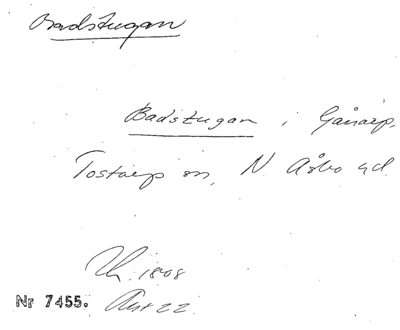 Badstugan
Badstugan i Gånarp,
Tostarp sn, N. Åsbo hd.
1808
Nr 7455.